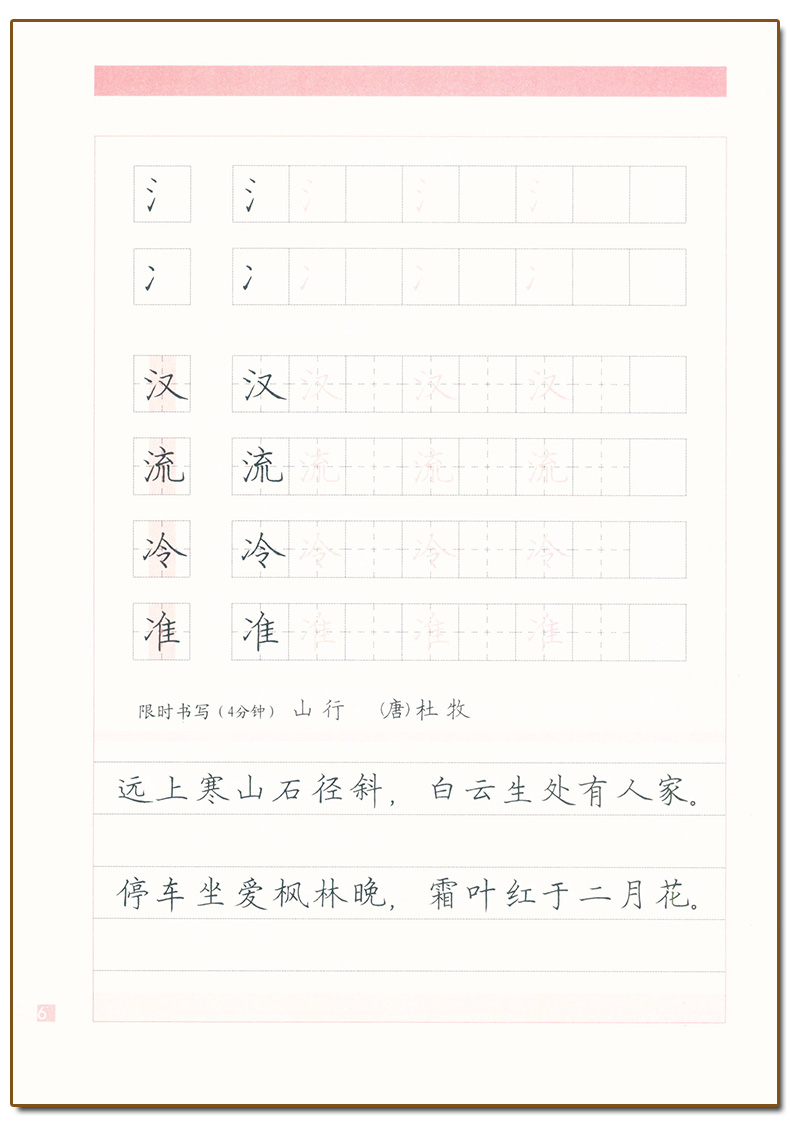 氵 氵 氵 氵 氵
冫 冫 冫 冫 冫
汉 汉 汉 汉 汉
流 流 流 流 流
冷 冷 冷 冷 冷
准 准 准 准 准
限时书写（4分钟） 山行 （唐）杜牧
远上寒山石径斜，白云生处有人家。
停车坐爱枫林晚，霜叶红于二月花。
6